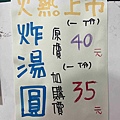 火熱上市
炸湯圓
(一下份)
原價40元
(一下份)
加購價35元